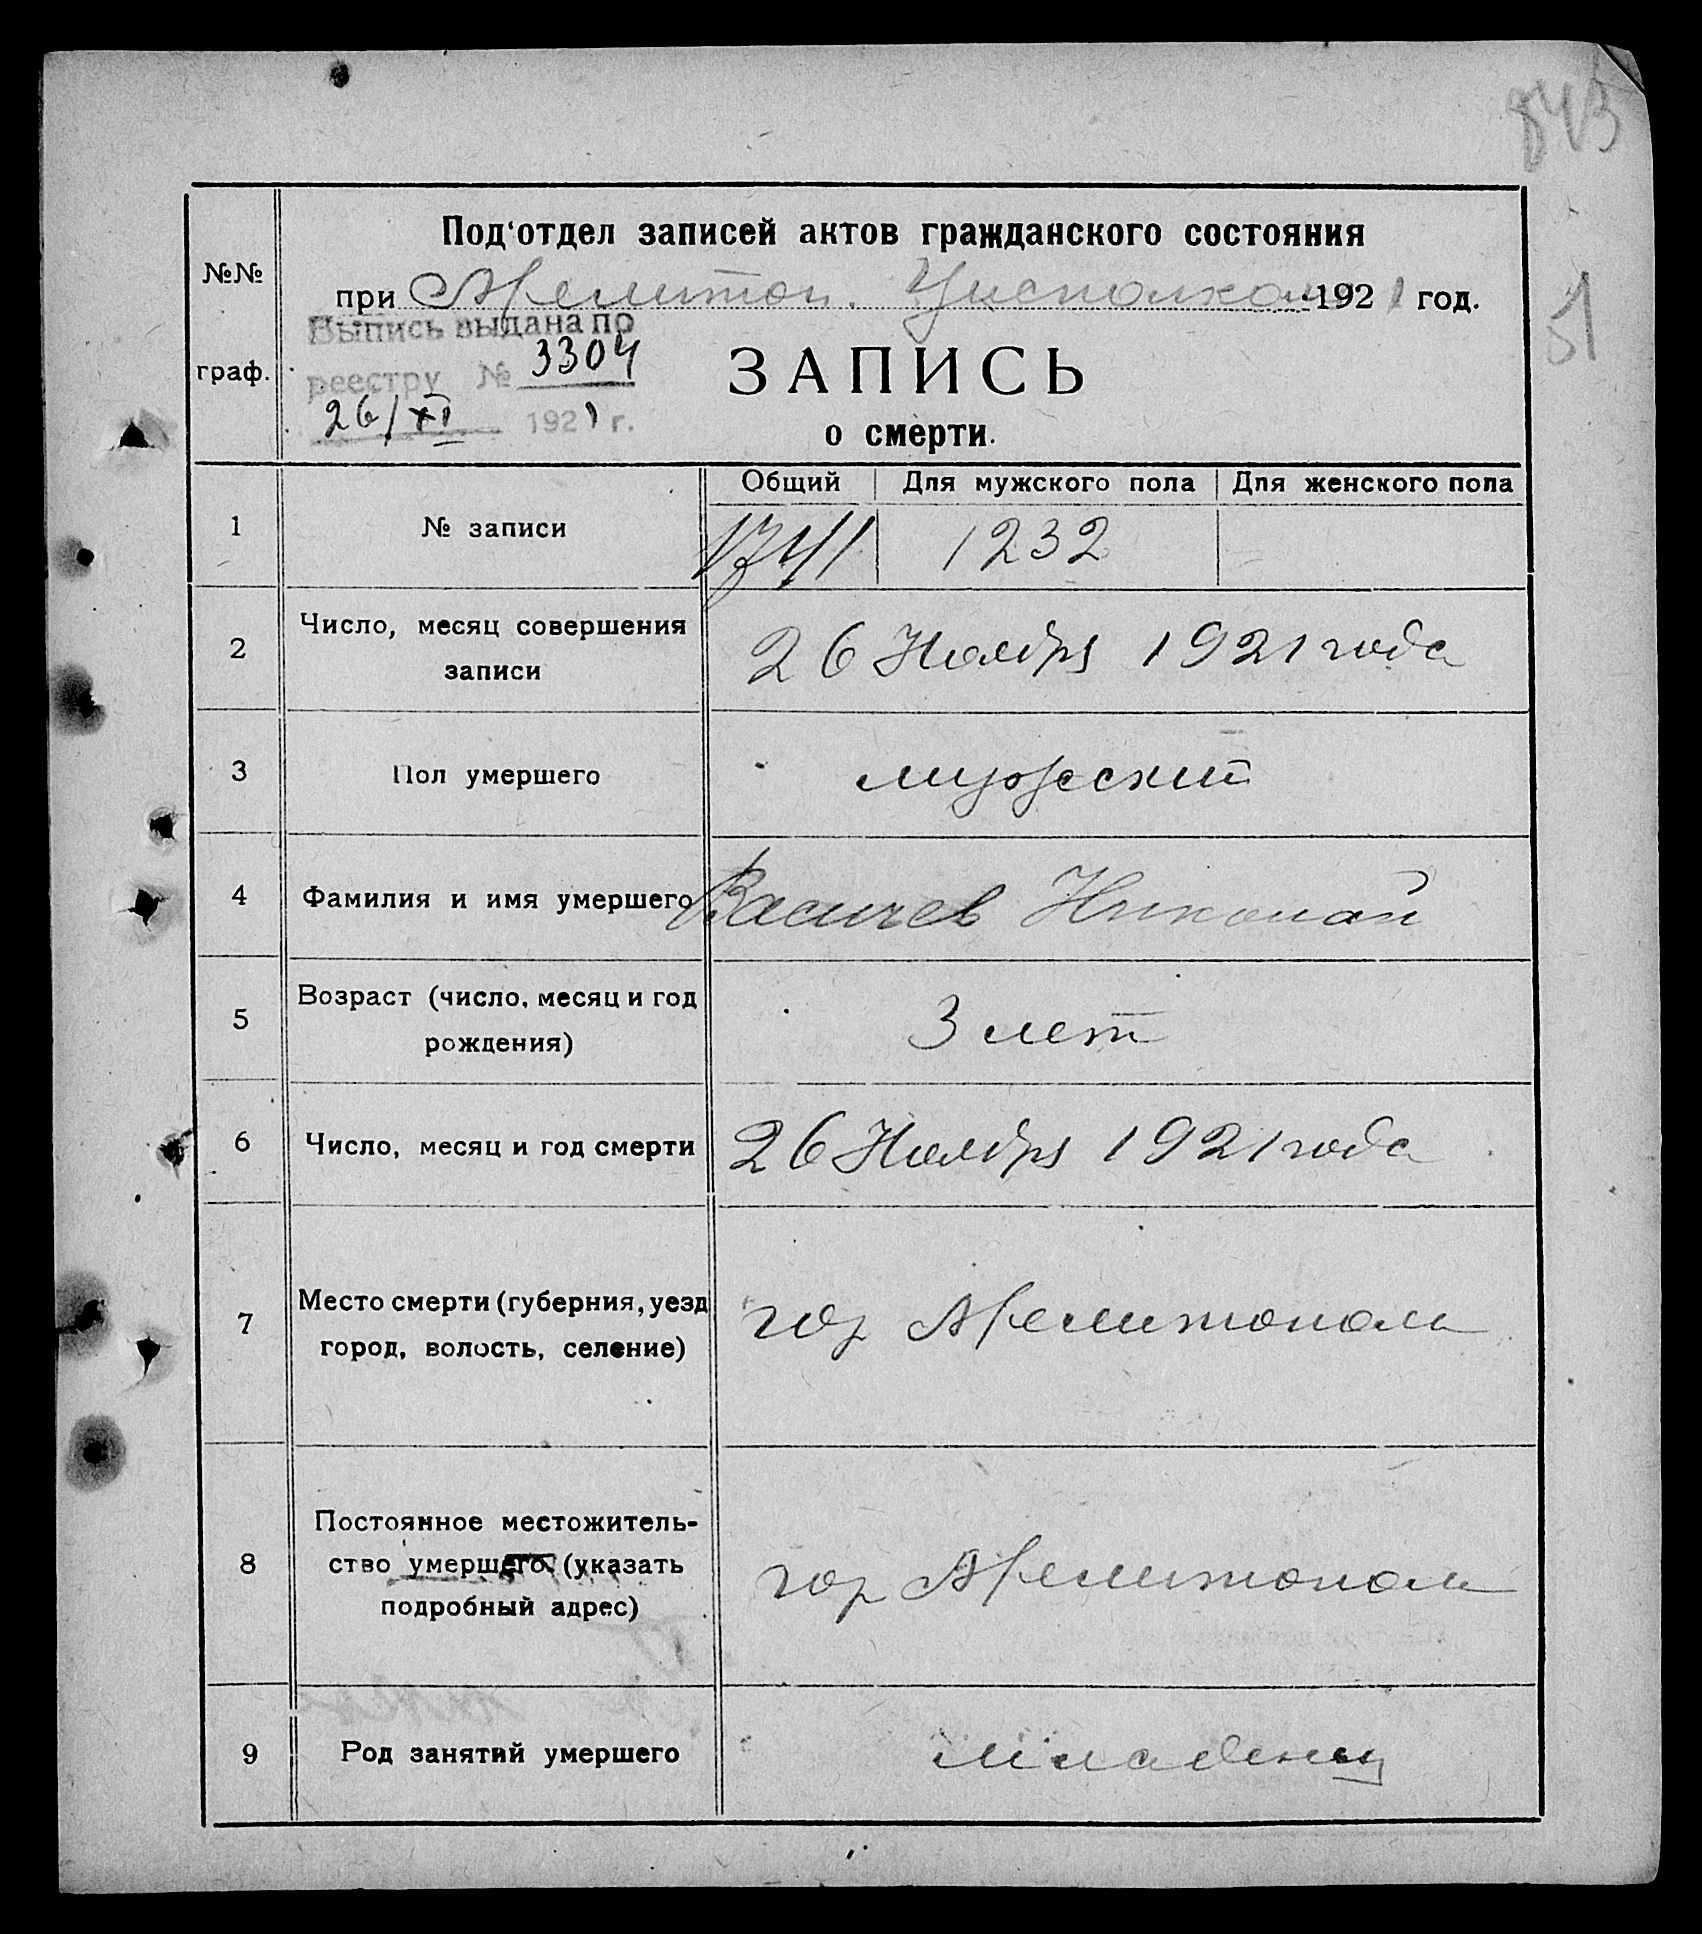 843
51
№№ граф.
Под'отдел записей актов гражданского состояния
при Мелитоп. Уисполком 1921 год.
Выпись выдана по
реестру № 3304
26/XI 1921 г.
ЗАПИСЬ
о смерти.
Общий Для мужского пола Для женского пола
1 № записи 1741 1232
2 Число, месяц совершения
записи
26 Ноября 1921 года
3 Пол умершего мужеский
4 Фамилия и имя умершего Николай
5 Возраст (число, месяц и год
рождения)
3 лет
6 Число, месяц и год смерти 26 Ноября 1921 года
7 Место смерти (губерния, уезд
город, волость, селение)
гор Мелитополь
8 Постоянное местожитель-
ство умершего (указать
подробный адрес)
гор Мелитополь
9 Род занятий умершего младенец